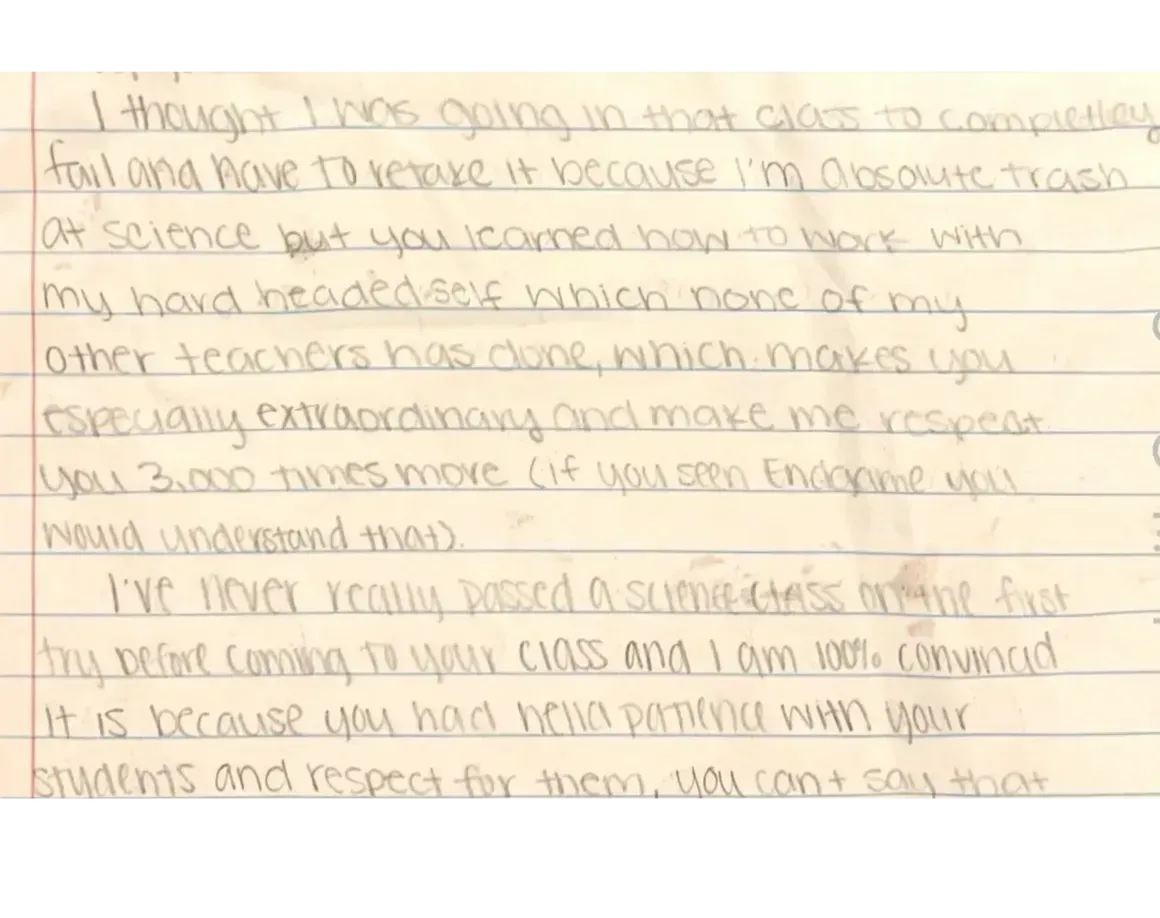 I thought I was going in that class to completley
fail and have to retake it because I'm absolute trash
at science but you learned how to work with
my hard headed self which none of my
other teachers has done, which makes you
especially extraordinary and make me respect
you 3,000 times more (if you seen Endgame you
would understand that).
I've never really passed a science class on the first
try before coming to your class and I am 100% convincd
it is because you had hella patience with your
students and respect for them, you can't say that